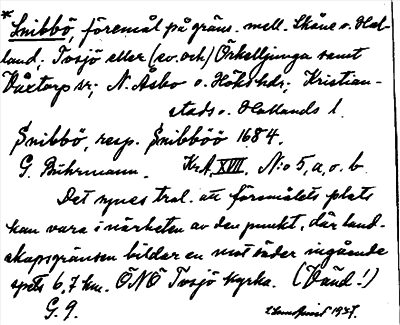 * Snibbö, föremål på gräns. mell. Skåne o. Hal-
land, Tosjö eller (ev. och) Örkelljunga samt
Våxtorp sr; N. Åsbo o. Höks hdr; Kristian-
stads o. Hallands l.
Snibbö, resp. Snibböö 1684.
G. Buhrmann. Kr. A. XVII. N:o 5, a, o. b.
Det synes tral. att föremålets plats
kan vara i närheten av den punkt, där land-
skapsgränsen bildar en mot söder ingående
spets 6,7 km. ÖNÖ Tosjö kyrka. (Vänd!)
G. 9.